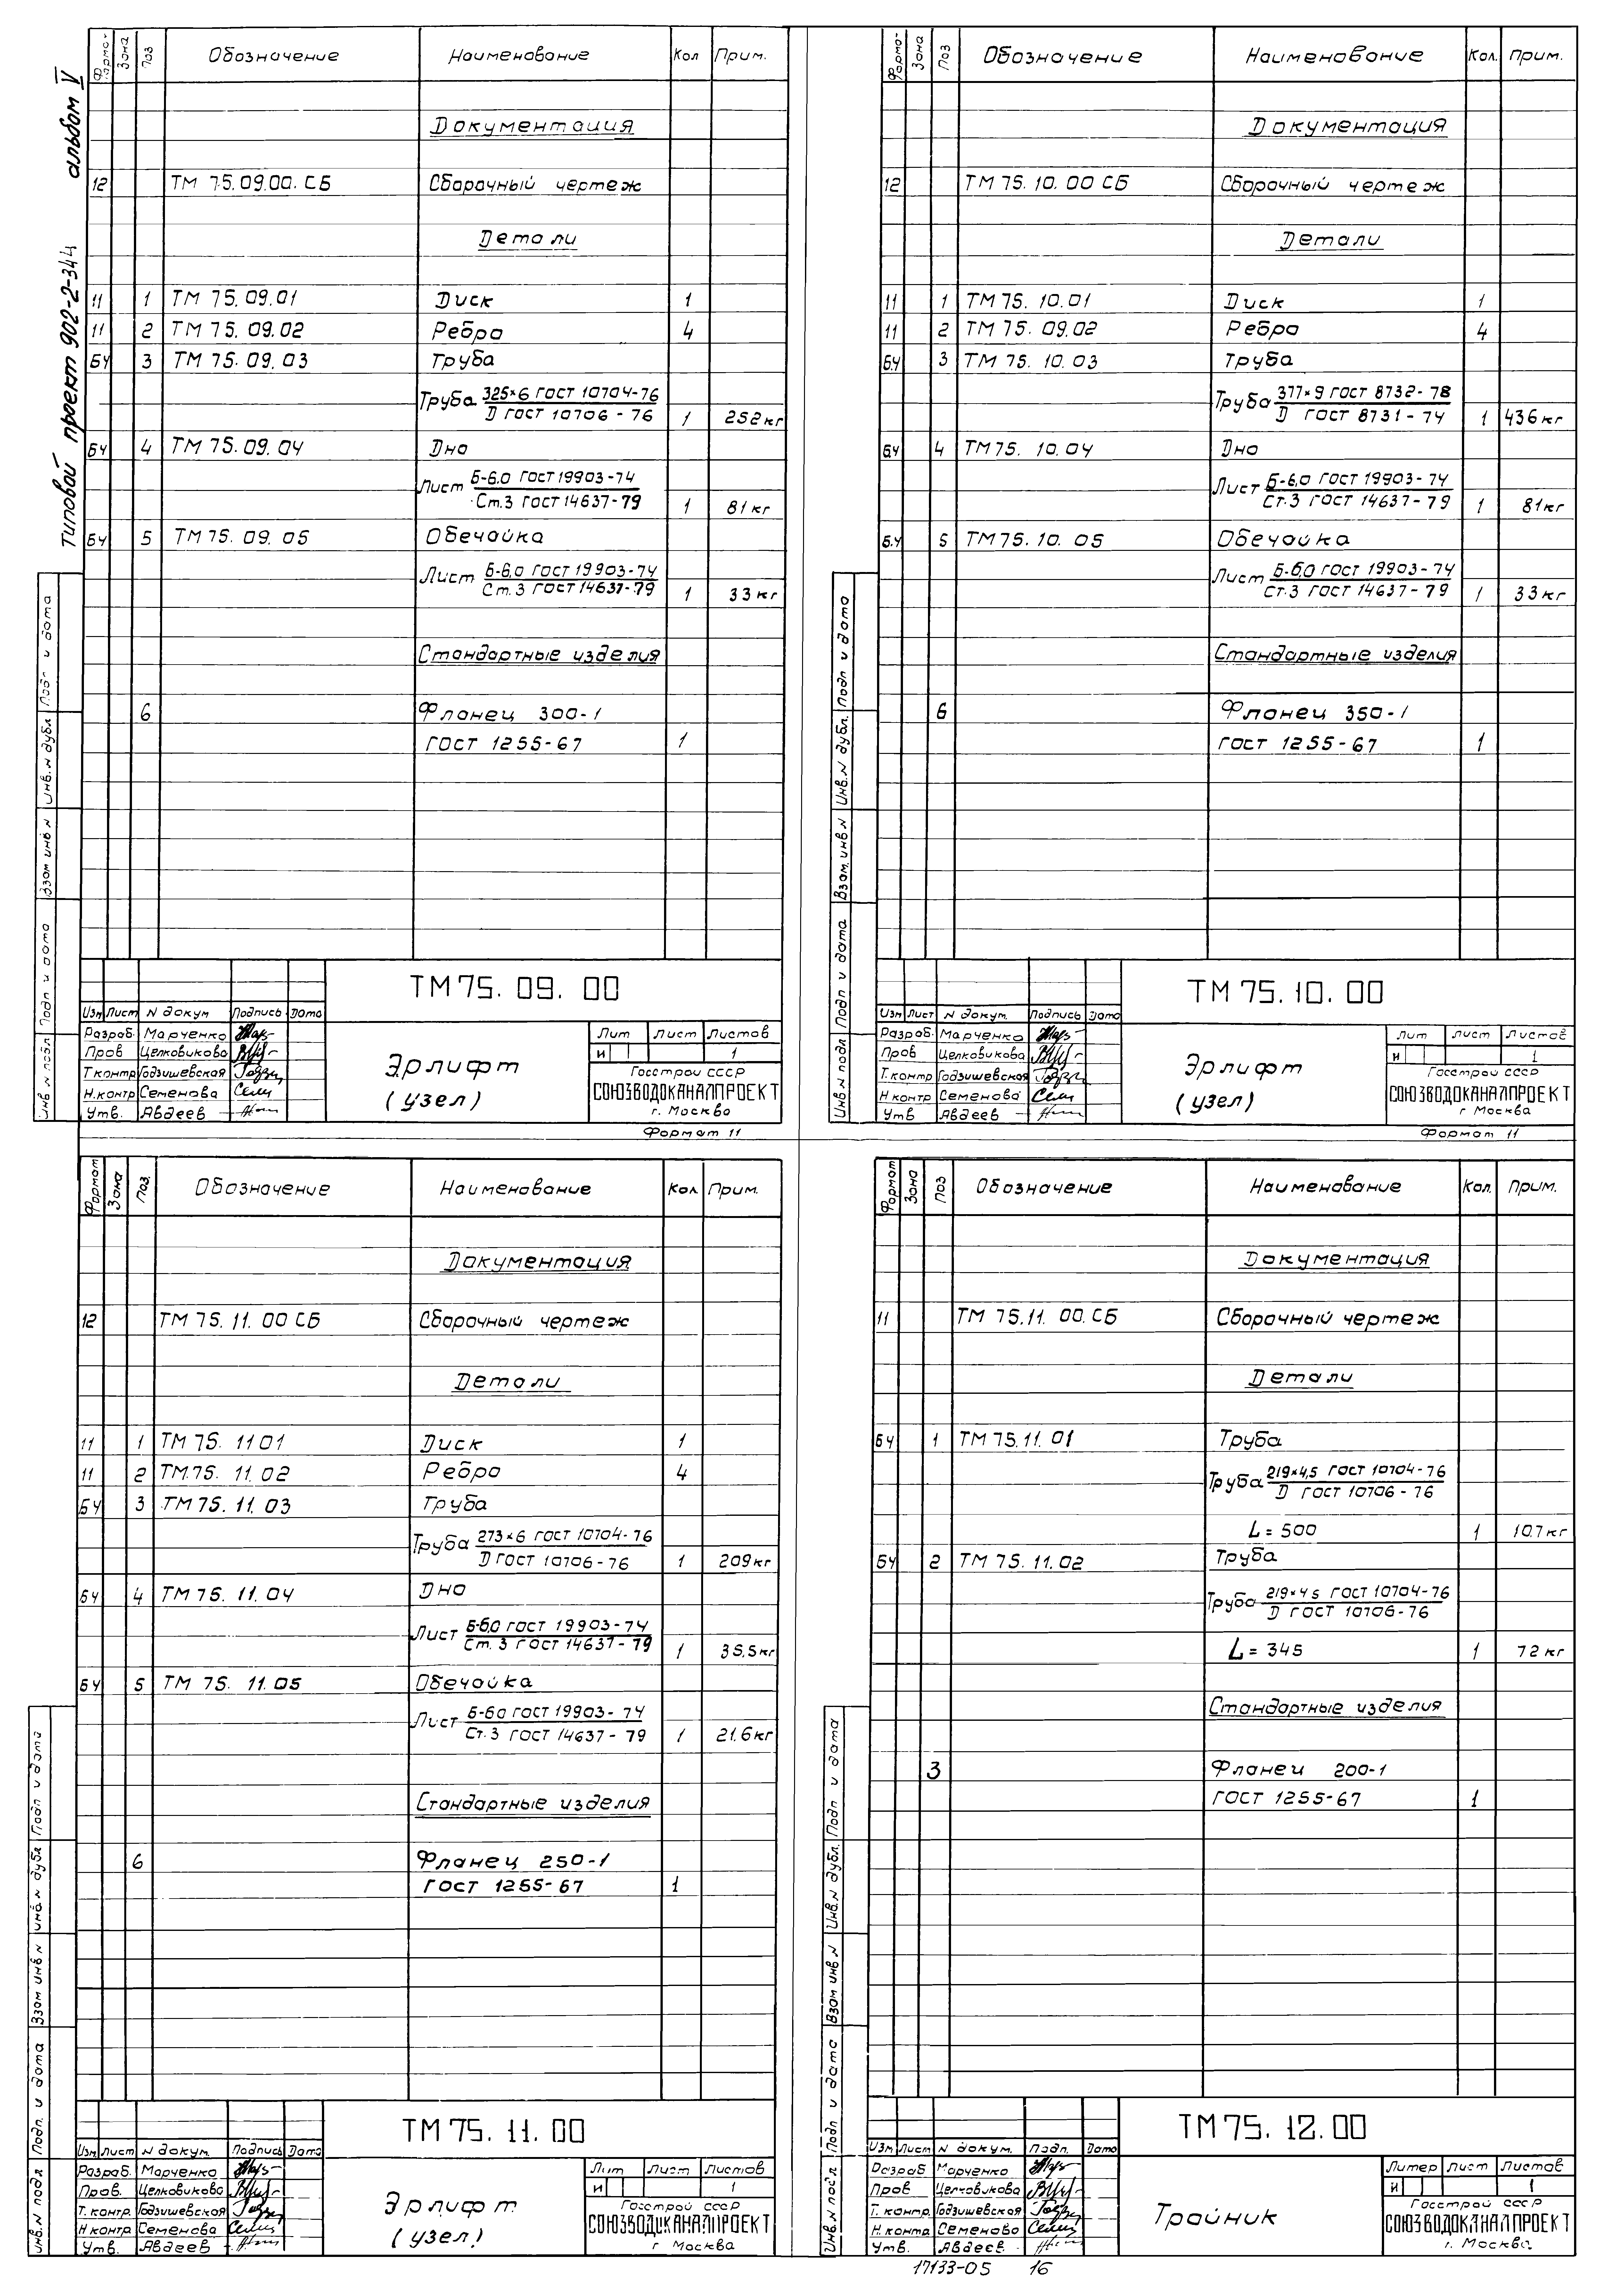 Типовой проект 902-2-344 альбом V
Формат Зона Поз Обозначение Наименование Кол Прим.
Документация
12 ТМ 75.09.00.СБ Сборочный чертеж
Детали
11 1 ТМ 75.09.01 Диск 1
11 2 ТМ 75.09.02 Ребро 4
БЧ 3 ТМ 75.09.03 Труба
Труба 325×6 ГОСТ 10704-76
D ГОСТ 10706-76 1 252кг
БЧ 4 ТМ 75.09.04 Дно
Лист Б-6.0 ГОСТ 19903-74
Ст.3 ГОСТ 14637-79 1 81кг
БЧ 5 ТМ 75.09.05 Обечайка
Лист Б-6,0 ГОСТ 19903-74
Ст.3 ГОСТ 14637-79 1 33кг
Стандартные изделия
6 Фланец 300-1
ГОСТ 1255-67 1
Инв.N подл Подп и дата Взам инв N Инв.N дубл Подп и дата
ТМ 75.09.00
Изм Лист N докум Подпись Дата
Разраб. Марченко
Пров Целковикова
Т.контр Годзишевская
Н.контр Семенова
Утв. Авдеев
Эрлифт
(узел)
Лит Лист Листов
и 1
Госстрой СССР
СОЮЗВОДОКАНАЛПРОЕКТ
г. Москва
Формат 11
Формат Зона Поз Обозначение Наименование Кол. Прим.
Документация
12 ТМ 75.10.00 СБ Сборочный чертеж
Детали
11 1 ТМ 75.10.01 Диск 1
11 2 ТМ 75.09.02 Ребро 4
БЧ 3 ТМ 75.10.03 Труба
Труба 377×9 ГОСТ 8732-78
D ГОСТ 8731-74 1 436кг
БЧ 4 ТМ 75.10.04 Дно
Лист Б-6,0 ГОСТ 19903-74
Ст.3 ГОСТ 14637-79 1 81кг
БЧ 5 ТМ 75.10.05 Обечайка
Лист Б-6,0 ГОСТ 19903-74
Ст.3 ГОСТ 14637-79 1 33кг
Стандартные изделия
6 Фланец 350-1
ГОСТ 1255-67 1
Инв.N подл Подп и дата Взам.инв.N Инв.N дубл. Подп и дата
ТМ 75.10.00
Изм Лист N докум. Подпись Дата
Разраб. Марченко
Пров Целковикова
Т.контр Годзишевская
Н контр Семенова
Утв Авдеев
Эрлифт
(узел)
Лит Лист Листов
и 1
Госстрой СССР
СОЮЗВОДОКАНАЛПРОЕКТ
г Москва
Формат 11
Формат Зона Поз. Обозначение Наименование Кол. Прим.
Документация
12 ТМ 75.11.00 СБ Сборочный чертеж
Детали
11 1 ТМ 75.1101 Диск 1
11 2 ТМ.75.11.02 Ребро 4
БЧ 3 ТМ 75.11.03 Труба
Труба 273×6 ГОСТ 10704-76
D ГОСТ 10706-76 1 209кг
БЧ 4 ТМ 75.11.04 Дно
Лист Б-6,0 ГОСТ 19903-74
Ст.3 ГОСТ 14637-79 1 35,5кг
БЧ 5 ТМ 75.11.05 Обечайка
Лист Б-60 ГОСТ 19903-74
Ст.3 ГОСТ 14637-79 1 21.6кг
Стандартные изделия
6 Фланец 250-1
ГОСТ 1255-67 1
Инв.N подл Подп. и дата Взам инв N Инв.N дубл Подп и дата
ТМ 75.11.00
Изм Лист N докум. Подпись Дата
Разраб. Марченко
Пров. Целковикова
Т.контр. Годзишевская
Н контр. Семенова
Утв. Авдеев
Эрлифт
(узел)
Лит Лист Листов
и 1
Госстрой СССР
СОЮЗВОДОКАНАЛПРОЕКТ
г Москва
Формат Зона Поз Обозначение Наименование Кол. Прим.
Документация
11 ТМ 75.11.00.СБ Сборочный чертеж
Детали
БЧ 1 ТМ 75.11.01 Труба
Труба 219×4,5 ГОСТ 10704-76
D ГОСТ 10706-76
L=500 1 10.7кг
БЧ 2 ТМ 75.11.02 Труба
Труба 219×4 5 ГОСТ 10704-76
D ГОСТ 10706-76
L=345 1 72кг
Стандартные изделия
3 Фланец 200-1
ГОСТ 1255-67 1
Инв.N подл Подп и дата Взам инв N Инв.N дубл. Подп и дата
ТМ 75.12.00
Изм Лист N докум. Подп. Дата
Разраб Марченко
Пров. Целковикова
Т.контр. Годзишевская
Н.контр. Семенова
Утв. Авдеев.
Тройник
Литер Лист Листов
и 1
Госстрой СССР
СОЮЗВОДОКАНАЛПРОЕКТ
г. Москва.
17133-05 16